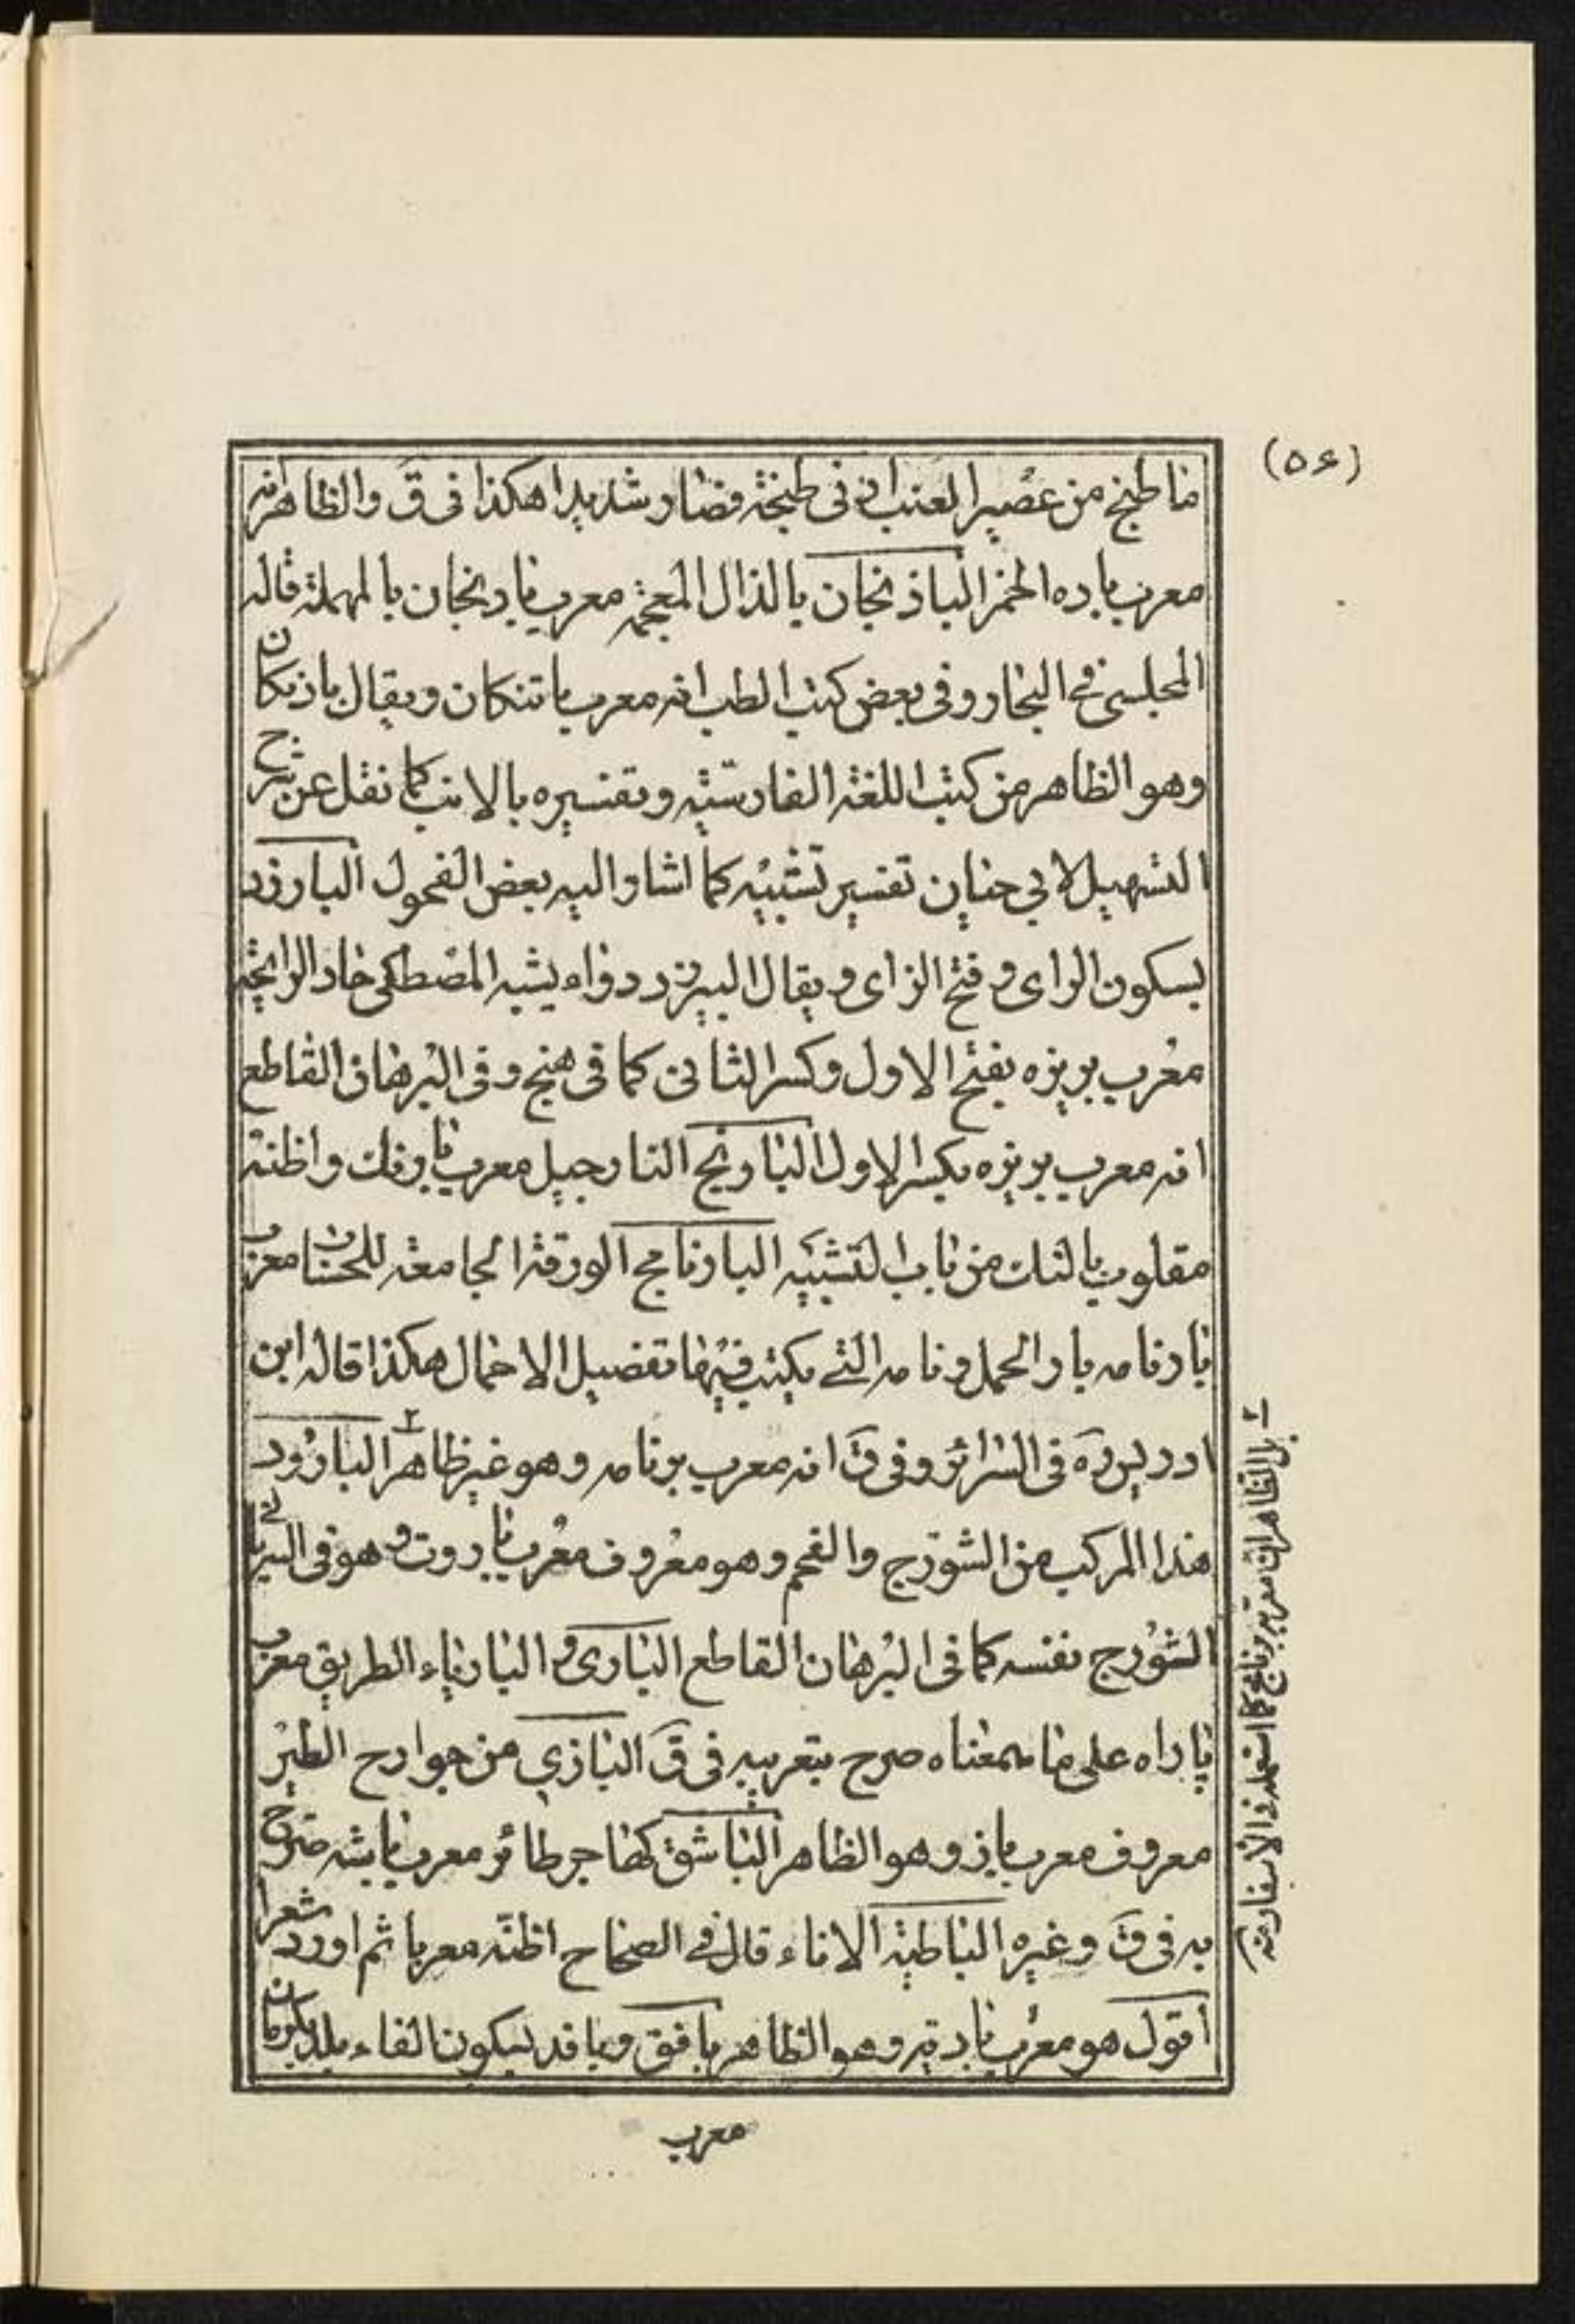 (٥۶)
ما طبخ من عصير العنب ادنى طبخة فصار شديدا هكذا فى ق والظاهر انه
معرب باده الخمر الباذنجان بالذال المعجمة معرب بادنجان بالمهملة قاله
المجلسى فى البحار وفى بعض كتب الطب انه معرب باتنكان ويقال بازنكان
وهو الظاهر من كتب اللغة الفارسية وتفسيره بالانب كما نقل عن شرح
التسهيل لابى حيان تفسير تشبيه كما اشار اليه بعض الفحول البارزد
بسكون الراى وفتح الزاى ويقال البيرزد دواء يشبه المصطكى حاد الرايحة
معرب بريزه بفتح الاول وكسر الثانى كما فى هنج وفى البرهان القاطع
انه معرب بريزه بكسر الاول البارنج النارجيل معرب بارنك واظنه
مقلوب بالنك من باب التشبيه البارنامج الورقة الجامعة للحسنات معرب
بارنامه بار الحمل ونامه التى يكتب فيها تفصيل الاحمال هكذا قاله ابن
ادريس ره فى السرائر وفى ق انه معرب برنامه وهو غير ظاهر ٢ البارود
هذا المركب من الشورج والفحم وهو معروف معرب باروت وهو فى السريانى
الشورج نفسه كما فى البرهان القاطع البارى والبارياء الطريق معرب
باراه على ما بمعناه صرح بتعريبه فى ق البازي من جوارح الطير
معروف معرب باز وهو الظاهر الباشق كهاجر طائر معرب باشه صرح
به فى ق وغيره الباطية الاناء قال فى الصحاح اظنه معربا ثم اورد شعرا
اقول هو معرب بادية وهو الظاهر بافق وبافد بسكون الفاء بلد بكرمان
معرب
٢ بل الظاهر انه معرب برنامج كما استعمله فى الاسفار منه